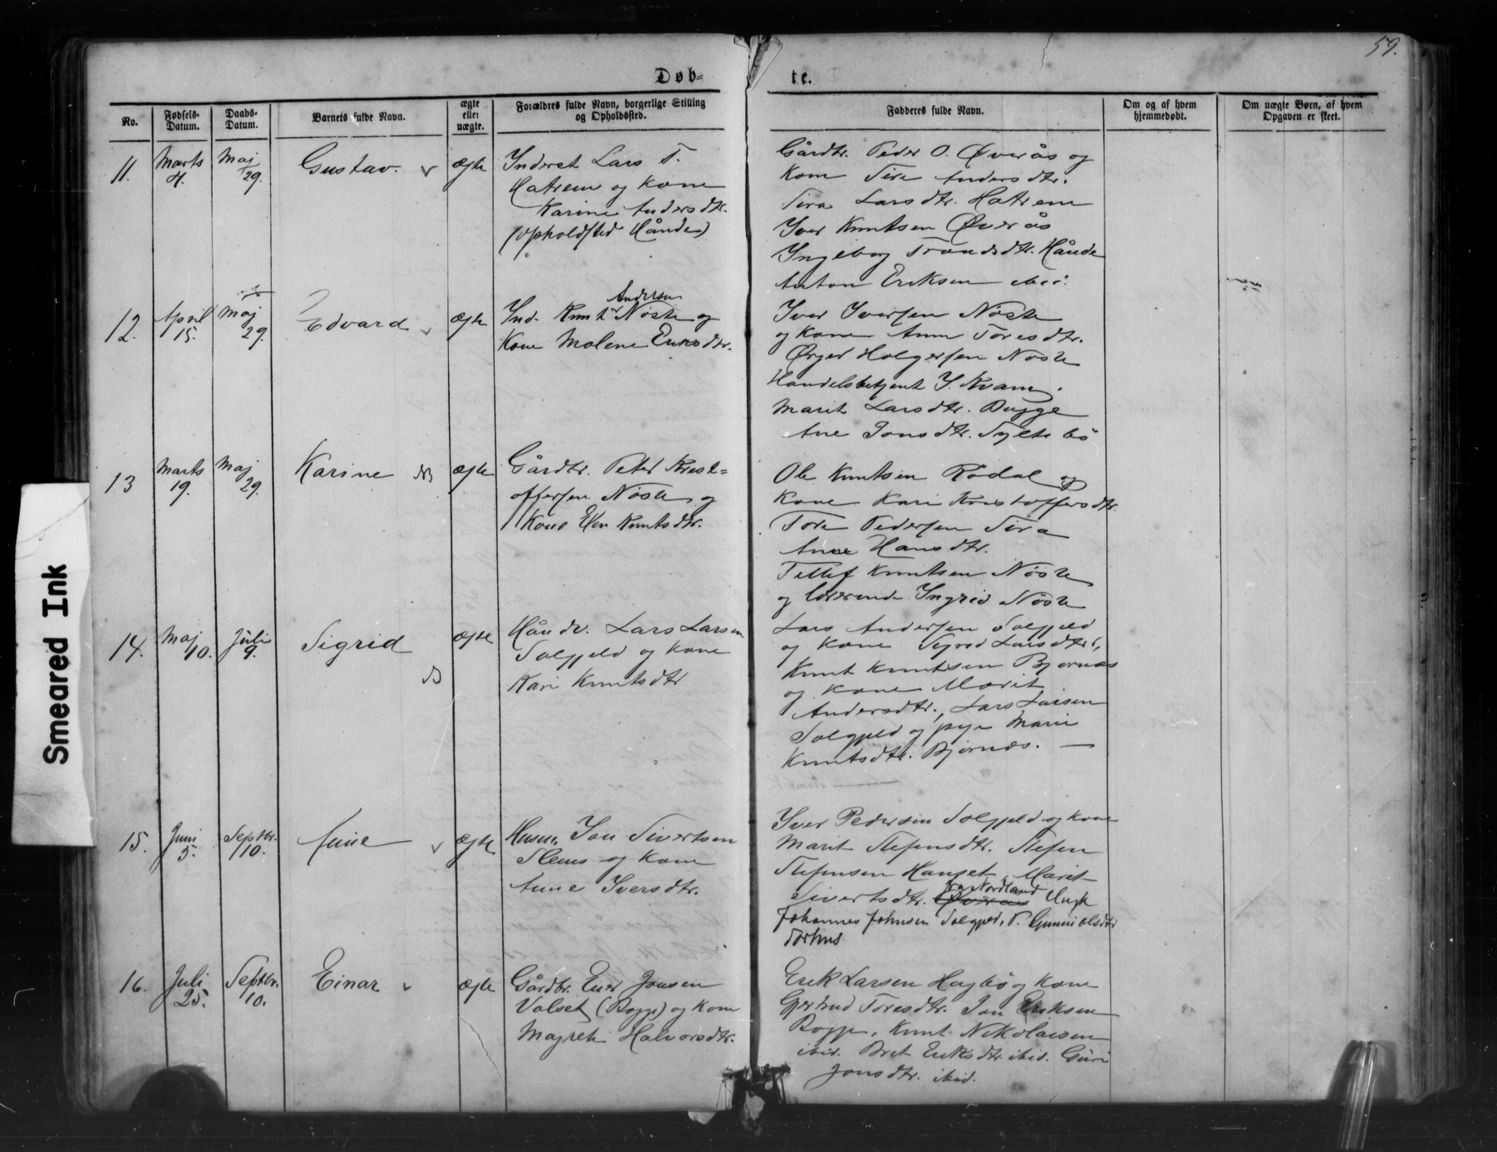 59.
Døb=
te.
No.
Fødsels-Datum.
Daabs-Datum.
Barnets fulde Navn.
ægte eller uægte.
Forældres fulde Navn, borgerlige Stilling og Opholdssted.
Fadderes fulde Navn.
Om og af hvem hjemmedøbt.
Om uægte Børn, af hvem Opgaven er skeet.
11. Marts 4. Maj 29. Gustav. ægte
Inderst Lars T.
Hatrem og Kone
Karine Andersdtr.
(Opholdsted Hånde)
Gårdbr. Peder O. Øverås og
Kone Siri Andersdtr.
Sira Larsdtr. Hatrem
Iver Knutsen Øverås
Ingeborg Trondsdtr. Hånde
Anton Eriksen ibid.
12. April 15. Maj 29. Edvard ægte
Andersen
Ind. Knut Nøste og
Kone Malene Eriksdtr.
Iver Iversen Nøste
og Kone Ane Toresdtr.
Holgersen Nøste
Handelsbetjent I. Kvam,
Marit Larsdtr. Bugge
Ane Jonsdtr. Syltebø
13 Marts 19. Maj 29. Karine ægte
Gårdbr. Peter Krist-
offersen Nøste og
Kone Knutsdtr.
Ole Knutsen Rødal og
Kone Kari Kristoffersdtr.
Tore Pedersen Sira
Anne Hansdtr.
Knutsen Nøste
og Ingrid Nøste
14. Maj 10. Juli 9. Sigrid ægte
Håndv. Lars Larsen
Solgjeld og Kone
Kari Knutsdtr
Lars Andersen Solgjeld
og Kone Sigrid Larsdtr.,
Knut Knutsen Bjørnås
og Kone Marit
Andersdtr., Lars Larsen
Solgjeld og pige Marie
Knutsdtr. Bjørnås. —
15. Juni 5. Septbr. 10. Anne ægte
Husm. Jon Sivertsen
Slenes og Kone
Anne Iversdtr.
Iver Pedersen Solgjeld og Kone
Marit Stefensdtr. Stefen
Stefensen Hanset, Marit
fra Nordland
Sivertsdtr. Ungk
Johannes Johnsen Solgjeld, P. Gunni Olsdtr
Torhus
16. Juli 25. Septbr. 10. Einar ægte
Gårdbr. Ener Jonsen
Valset (Bogge) og Kone
Magreta Halvorsdtr.
Erik Larsen Hagbø og Kone
Gjertrud Toresdtr. Jon Eriksen
Bogge, Knut Nikolaisen
ibid. Bret Eriksdtr ibid. Guri
Jonsdtr. ibid.
Smeared Ink